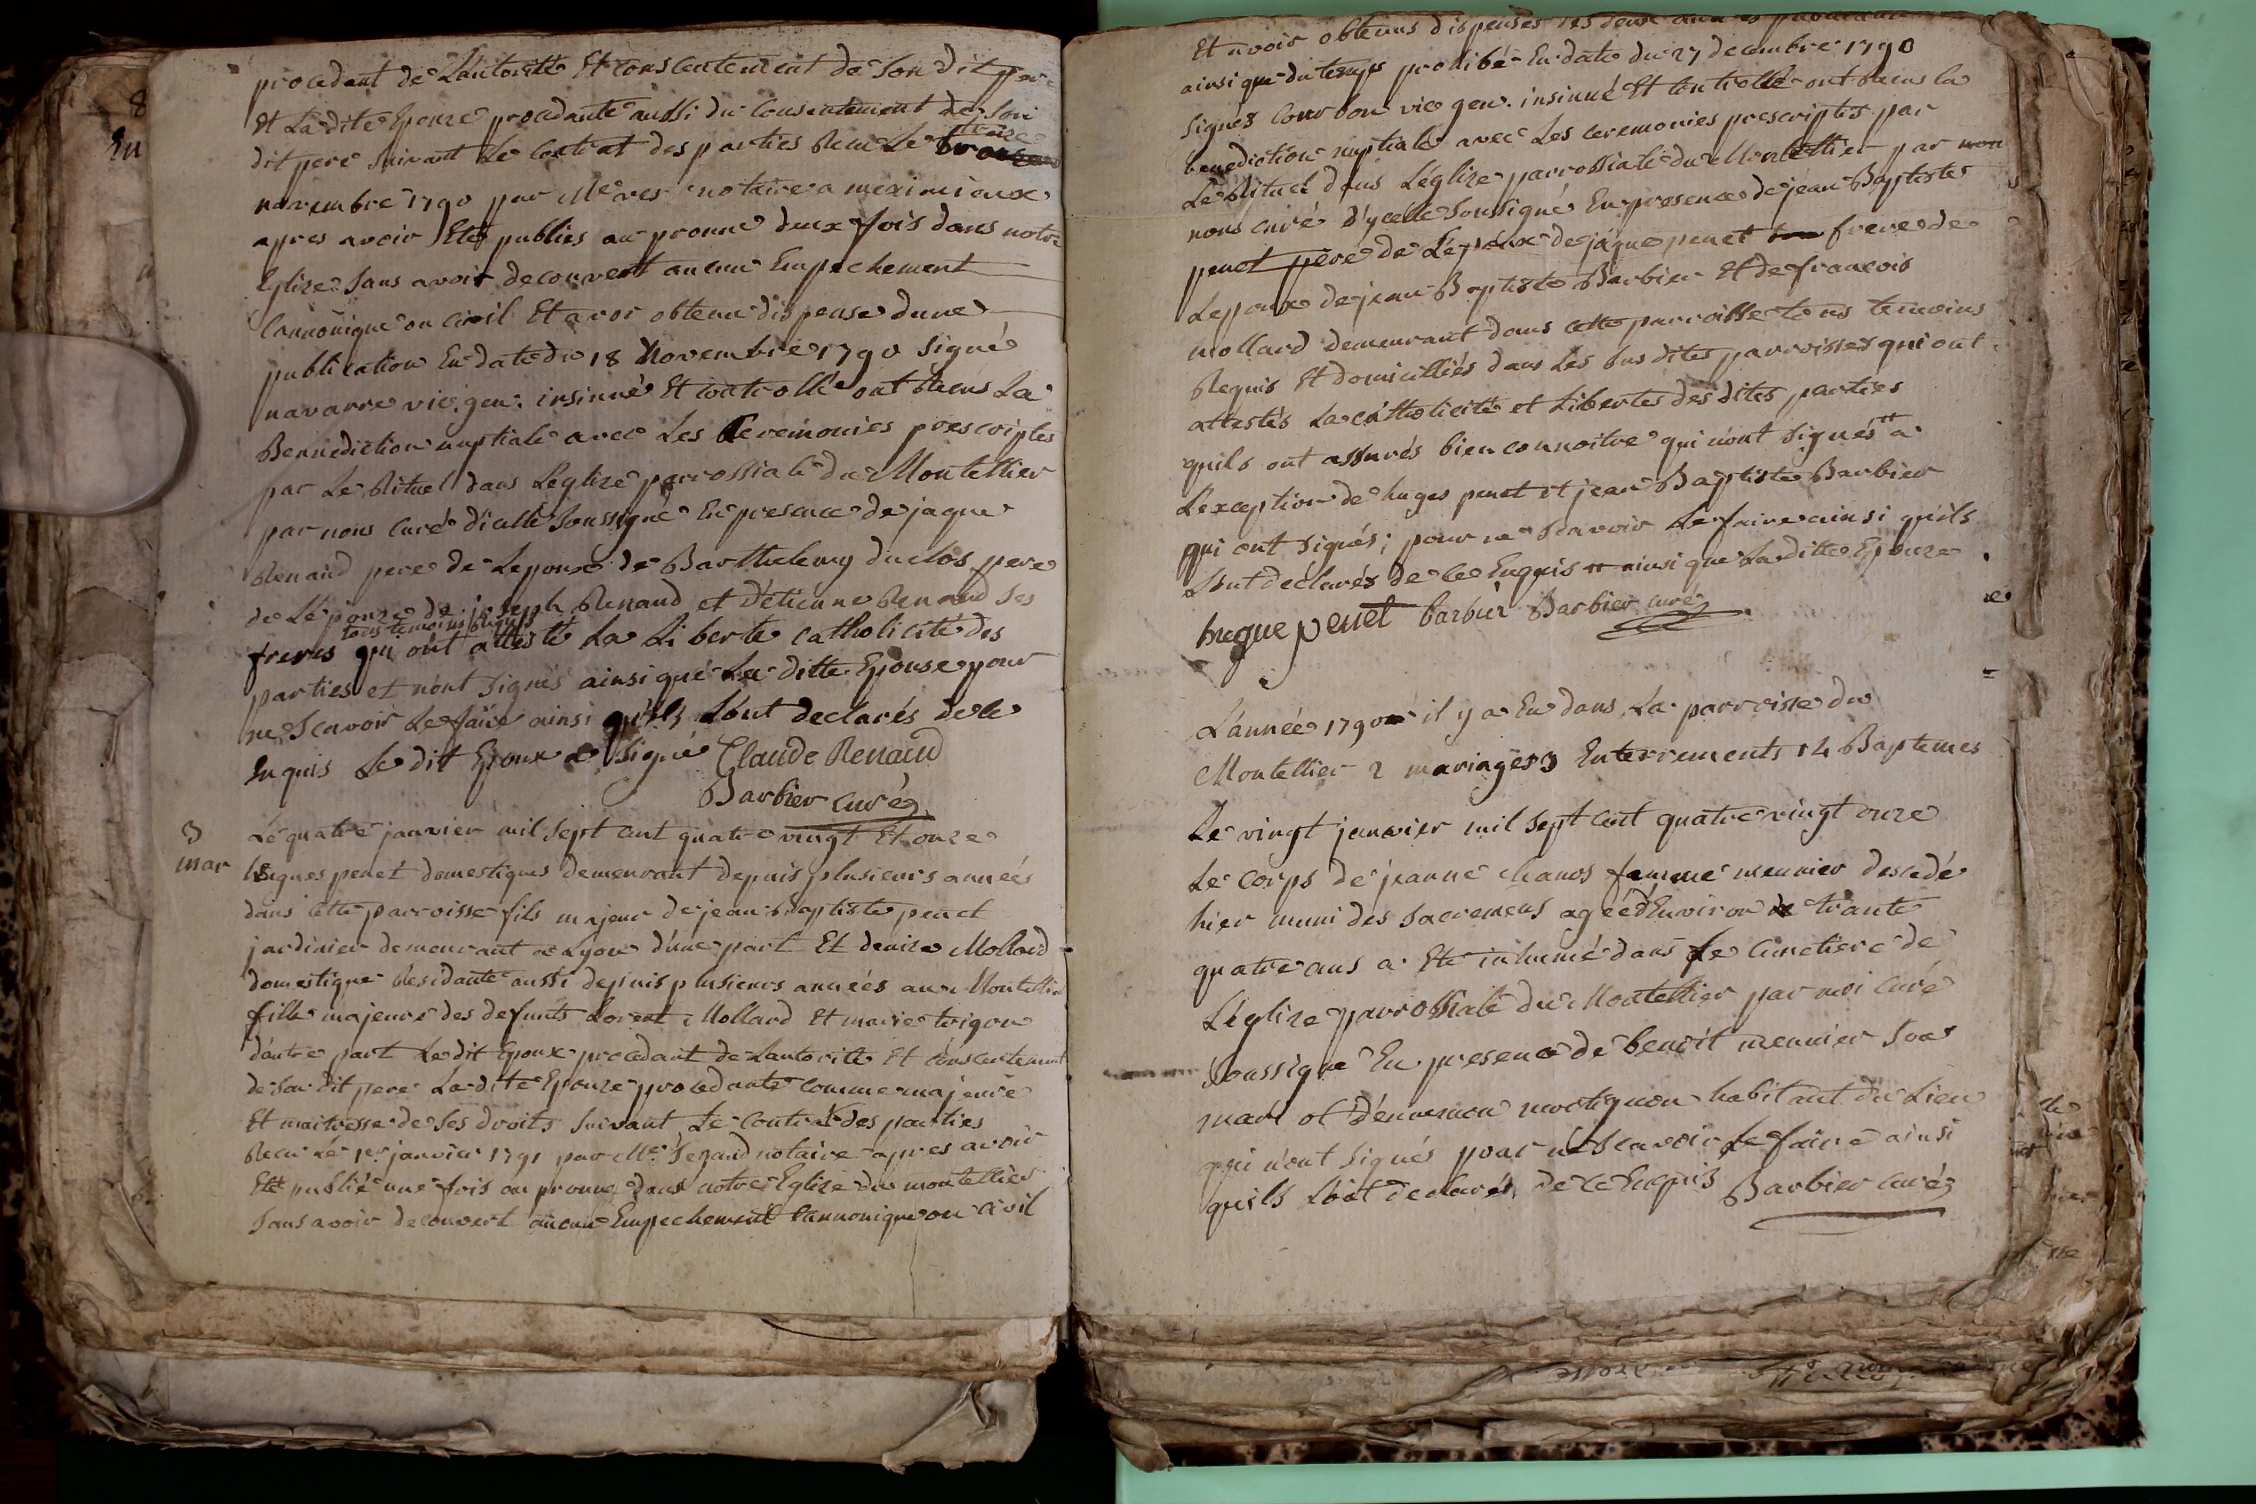 procedant de L'autorité Et consentement de Son dit pere
Et Ladite Epouze procedante aussi du Consentement de Son
dit pere suivant Le Contrat des parties Recu Le treize
novembre 1790 par Me notaire a meximieux
apres avoir Etés publiés au pronne deux fois dans notre
Eglise Sans avoir decouvert aucun Empechement
Cannonique ou civil Et avoir obtenu dispense dune
publication En date du 18 Novembre 1790 Signé
navarre vic. gen. insinué Et controllé ont Recus La
Bennediction nuptiale avec Les Ceremonies prescriptes
par Le Rituel dans Leglize parrossiale du Montellier
par nous Curé d'icelle Soussigné En presence de jaque
Renaud pere de Lepoux de Barthelemy duclos pere
de L'épouze de joseph Renaud et d'étienne Renaud Ses
tous temoins Requis
freres qui ont attesté La Liberté catholicité des
parties et n'ont Signés ainsi que La ditte Epouse pour
ne Scavoir Le faire ainsi qu'ils L'ont declarés de ce
Enquis Le dit Epoux a Signé Claude Renaud
Barbier curé
3 Le quatre janvier mil Sept cent quatre vingt Et onze
mar hugues penet domestiques demeurant depuis plusieurs années
dans cette parroisse fils majeur de jean Baptiste penet
jardinier demeurant a Lyon d'une part Et denize Mollard
domestique Residante aussi depuis plusieurs années au Montellier
fille majeure des defunts Lorent Mollard Et marie trigon
d'autre part Le dit Epoux procedant de Lautorité Et consentement
de Son dit pere La dite Epouze procedante comme majeure
Et maitresse de Ses droits Suivant Le Contrat des parties
Recu Le 1er janvier 1791 par Me notaire apres avoir
Eté publié une fois au pronne dans notre Eglize du montellier
Sans avoir decouvert aucun Empechement Cannonique ou civil
Et avoir obtenus dispenses des deux
ainsi que du temps prohibé En date du 27 decembre 1790
Signés Courbon vic gen. insinué Et controllé ont Recus la
benediction nuptiale avec Les ceremonies prescriptes par
Le Rituel dans Leglize parrossiale du Montellier par
nous curé d'ycelle Soussigné En presence de jean Baptiste
penet pere de L'époux de jaque penet frere de
Lepoux de jean Baptiste Barbier Et de francois
mollard demeurant dans cette parroisse tous temoins
Requis Et domicilliés dans Les Sus dites parroisses qui ont
attestés La catholicité et Libertés des dites parties
quils ont assurés bien connoitre qui n'ont Signés a
Lexception de hugues penet et jean Baptiste Barbier
qui ont Signés; pour ne Scavoir Le faire ainsi qu'ils
Lont déclarés de ce Enquis ainsi que Laditte Epouze
hugue penet barbier Barbier curé
L'année 1790 il y a Eu dans La parroisse du
Montellier 2 mariages 3 Enterrements 14 Baptemes
Le vingt janvier mil Sept cent quatre vingt onze
Le corps de jeanne chanos femme meunier decedé
hier muni des Sacremens agée d'Environ trante
quatre ans a Eté inhumé dans Le Cimetiere de
L'eglize parrossiale du Montellier par moi Curé
Soussigné En presence de benoit meunier Son
mari et habitant du Lieu
qui n'ont Signés pour ne Scavoir Le faire ainsi
quils L'ont declarés de ce Enquis Barbier curé